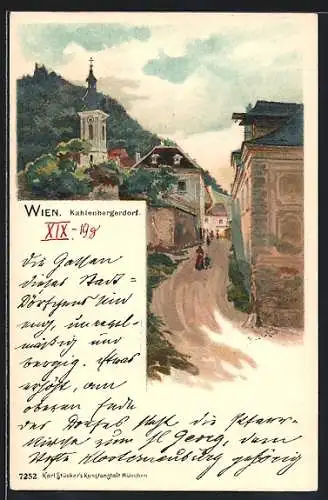 WIEN. Kahlenbergerdorf.
XIX - 19g
Die Gassen
dieses Stadt=
Dörfchens sind
eng, unregel-
mäßig und
bergig. Etwas
erhöht, am
oberen Ende
des Dorfes steht die Pfarr-
kirche zum Hl. Georg, dem
Stifte Klosterneuburg gehörig
7252 Karl Stücker's Kunstanstalt München